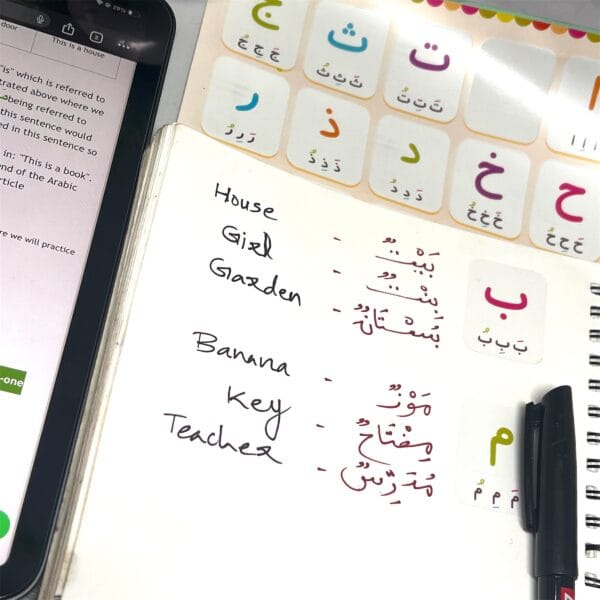 29%
door
This is a house
"is" which is referred to
trated above where we
being referred to
this sentence would
ed in this sentence so
in: "This is a book".
end of the Arabic
rticle
re we will practice
-one
ت ث ج
تَ تِ تُ ثَ ثِ ثُ جَ جِ جُ
ح خ د ذ ر
حَ حِ حُ خَ خِ خُ دَ دِ دُ ذَ ذِ ذُ رَ رِ رُ
House - بَيْتٌ
Girl - بِنْتٌ
Garden - بُسْتَانٌ
ب
بَ بِ بُ
Banana - مَوْزٌ
Key - مِفْتَاحٌ
Teacher - مُدَرِّسٌ
م
مَ مِ مُ